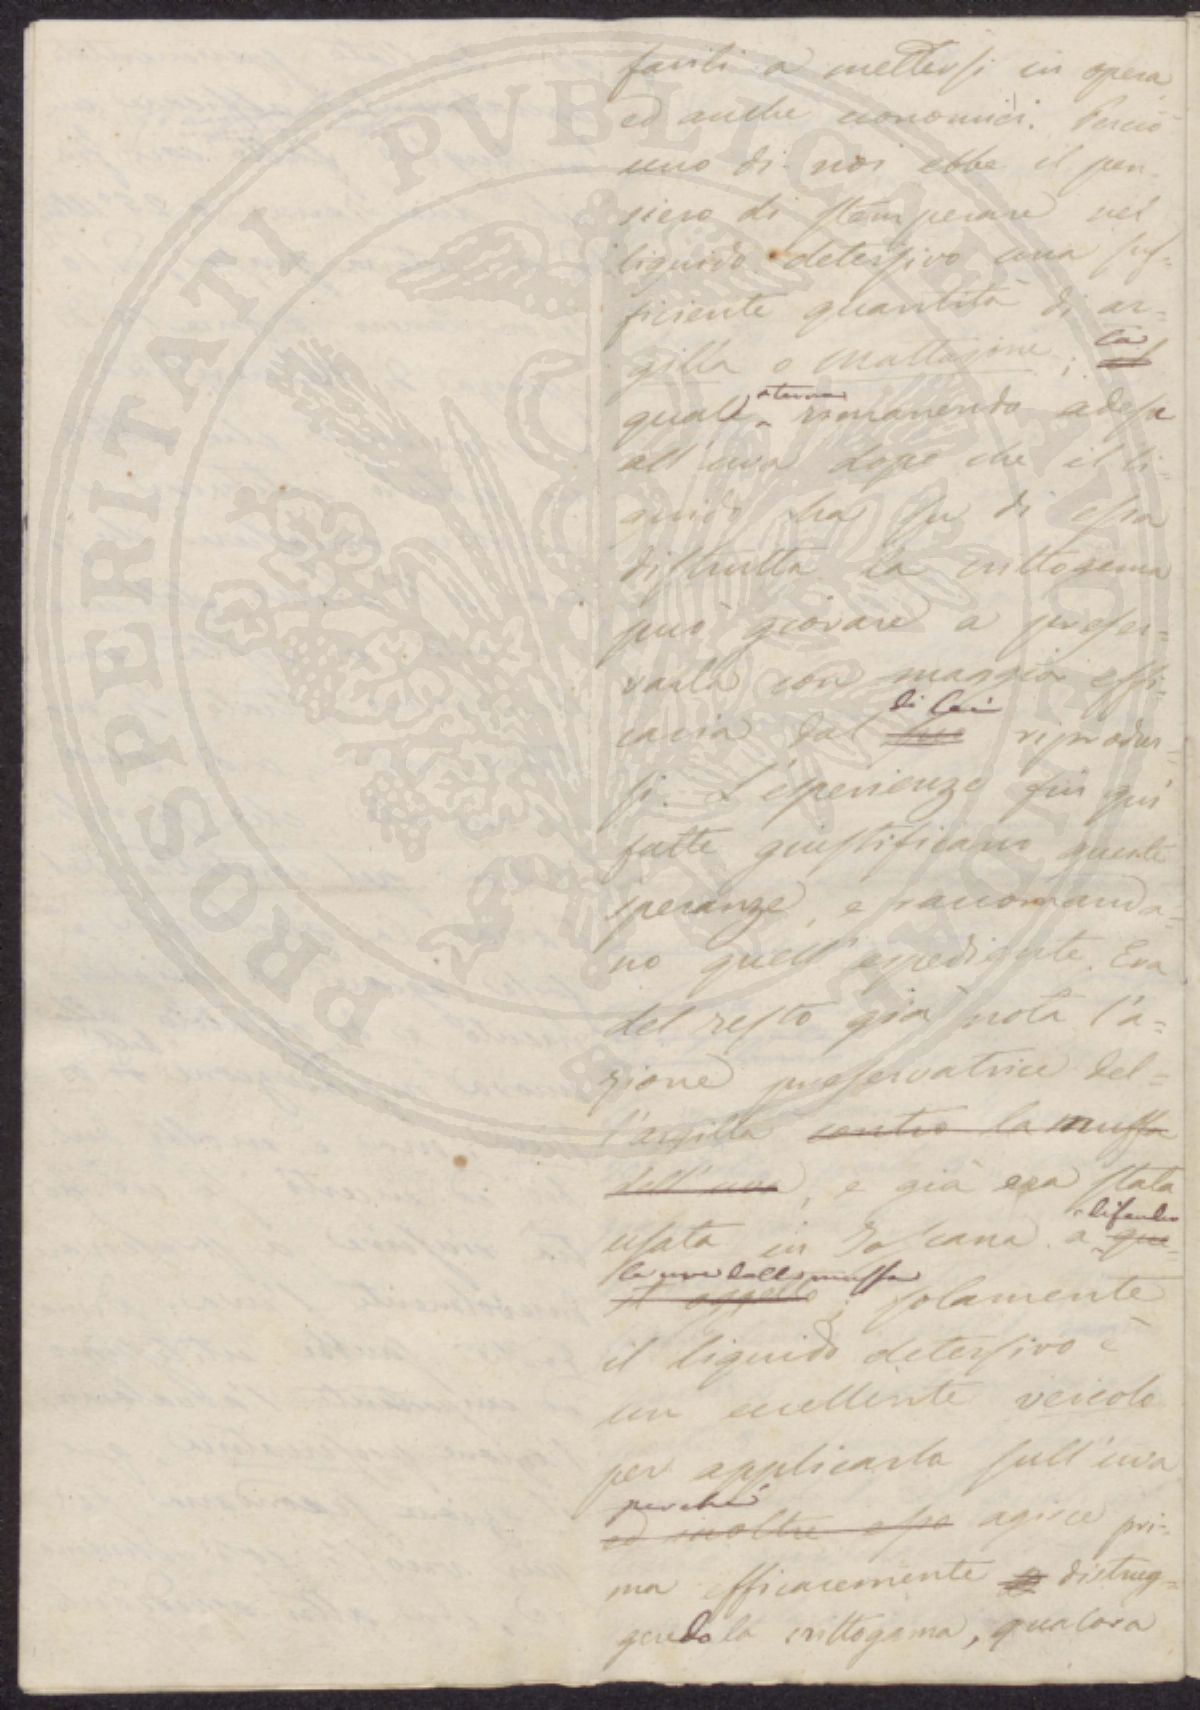 facili a mettersi in opera
ed anche economici. Perciò
uno di noi ebbe il pen-
siero di stemperare nel
liquido detersivo una suf-
ficiente quantità di ar-
gilla o mattaione; la
quale, rimanendo adesa
all'uva dopo che il li-
quido ha su di essa
distrutta la crittogama
può giovare a preser-
varla con maggior effi-
cacia dal suo di lei riprodur-
si. L'esperienze fin qui
fatte giustificano queste
speranze, e raccomanda-
no quell'espediente. Era
del resto già nota l'a-
zione preservatrice del-
l'argilla contro la muffa
dell'uva, e già era stata
usata in Toscana a difender
le uve dalla muffa; solamente
il liquido detersivo è
un eccellente veicolo
per applicarla sull'uva
perchè
ed inoltre esso agisce pri-
ma efficacemente distrug-
gendo la crittogama, qualora
PROSPERITATI PVBLICAE AVGENDAE